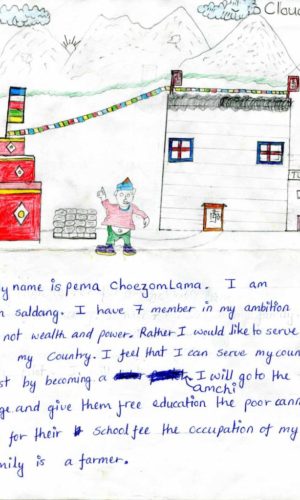 Cloud
y name is pema Choezom Lama. I am
saldang. I have 7 member in my ambition
not wealth and power. Rather I would like to serve
my Country. I feel that I can serve my coun
st by becoming a I will go to the
amchi
ge and give them free education the poor cann
for their school fee the occupation of my
mily is a farmer.